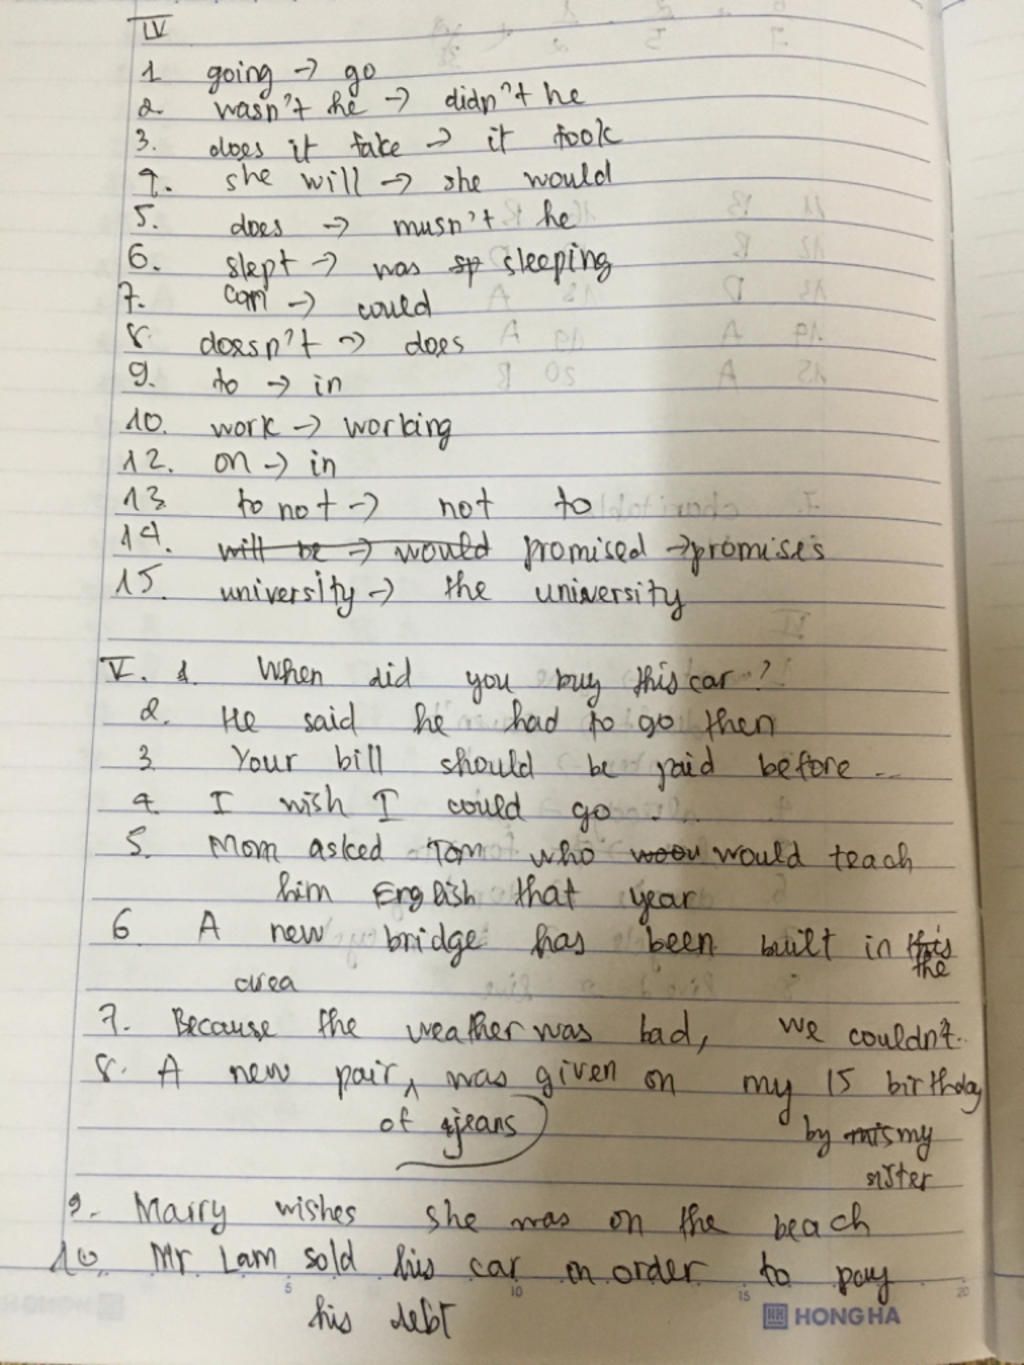 IV
1 going → go
2 wasn't he → didn't he
3. does it take → it took
4. she will → she would
5. does → musn't he
6. slept → was sleeping
7. can → could
8. doesn't → does
9. to → in
10. work → working
12. on → in
13 to not → not to
14. will be → would promised → promises
15. university → the university
V. 1. When did you buy this car ?
2. He said he had to go then
3 Your bill should be paid before ...
4 I wish I could go ...
5. Mom asked Tom who would teach
him English that year
6 A new bridge has been built in this
the
area
7. Because the weather was bad, we couldn't..
8. A new pair was given on my 15 birthday
of jeans
by my
sister
9. Marry wishes she was on the beach
10. Mr Lam sold his car in order to pay
his debt
5 10 15 20
HONG HA